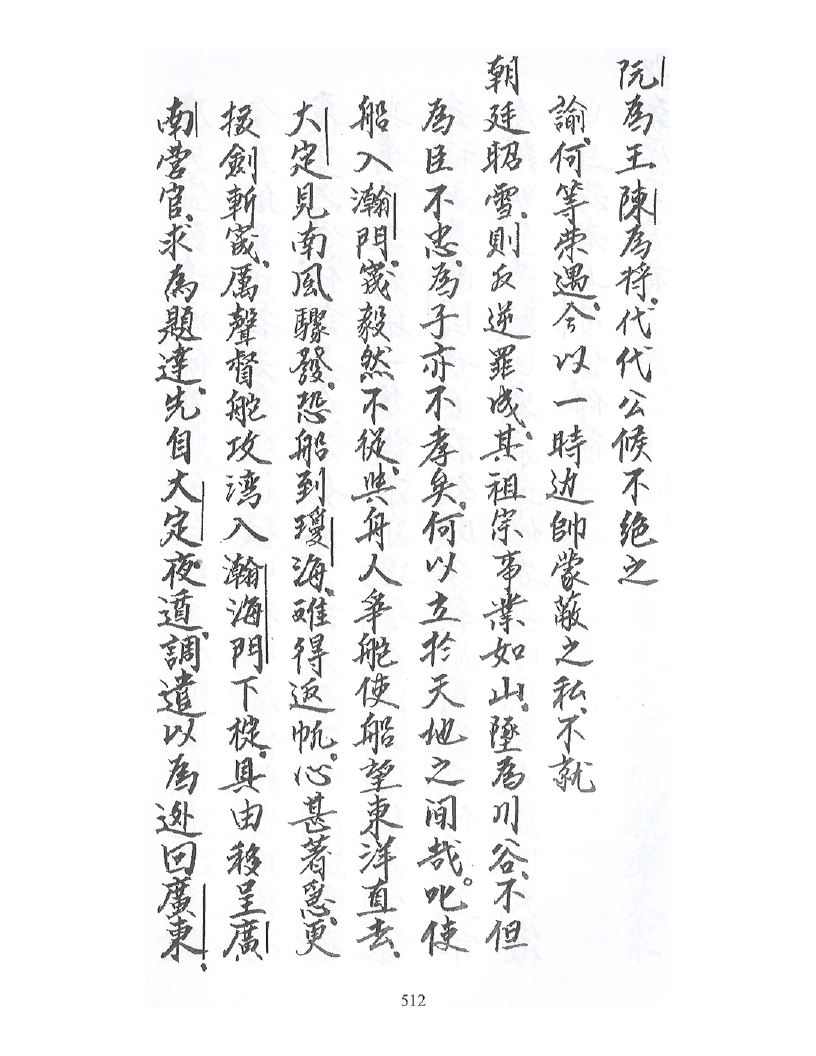 阮為王陳為将代代公候不绝之
諭何等荣遇今以一時边帥蒙蔽之私不就
朝廷昭雪則反逆罪成其祖宗事業如山墜為川谷不但
為臣不忠為子亦不孝矣何以立於天地之间哉叱使
船入瀚門箴毅然不従與舟人爭舵使船望東洋直去
大定見南風驟發恐船到瓊海难得返帆心甚着急更
拔劍斬箴厲聲督舵攻湾入瀚海門下椗具由移呈廣
南营官求為題達先自大定夜遁調遣以為逊回廣東
512